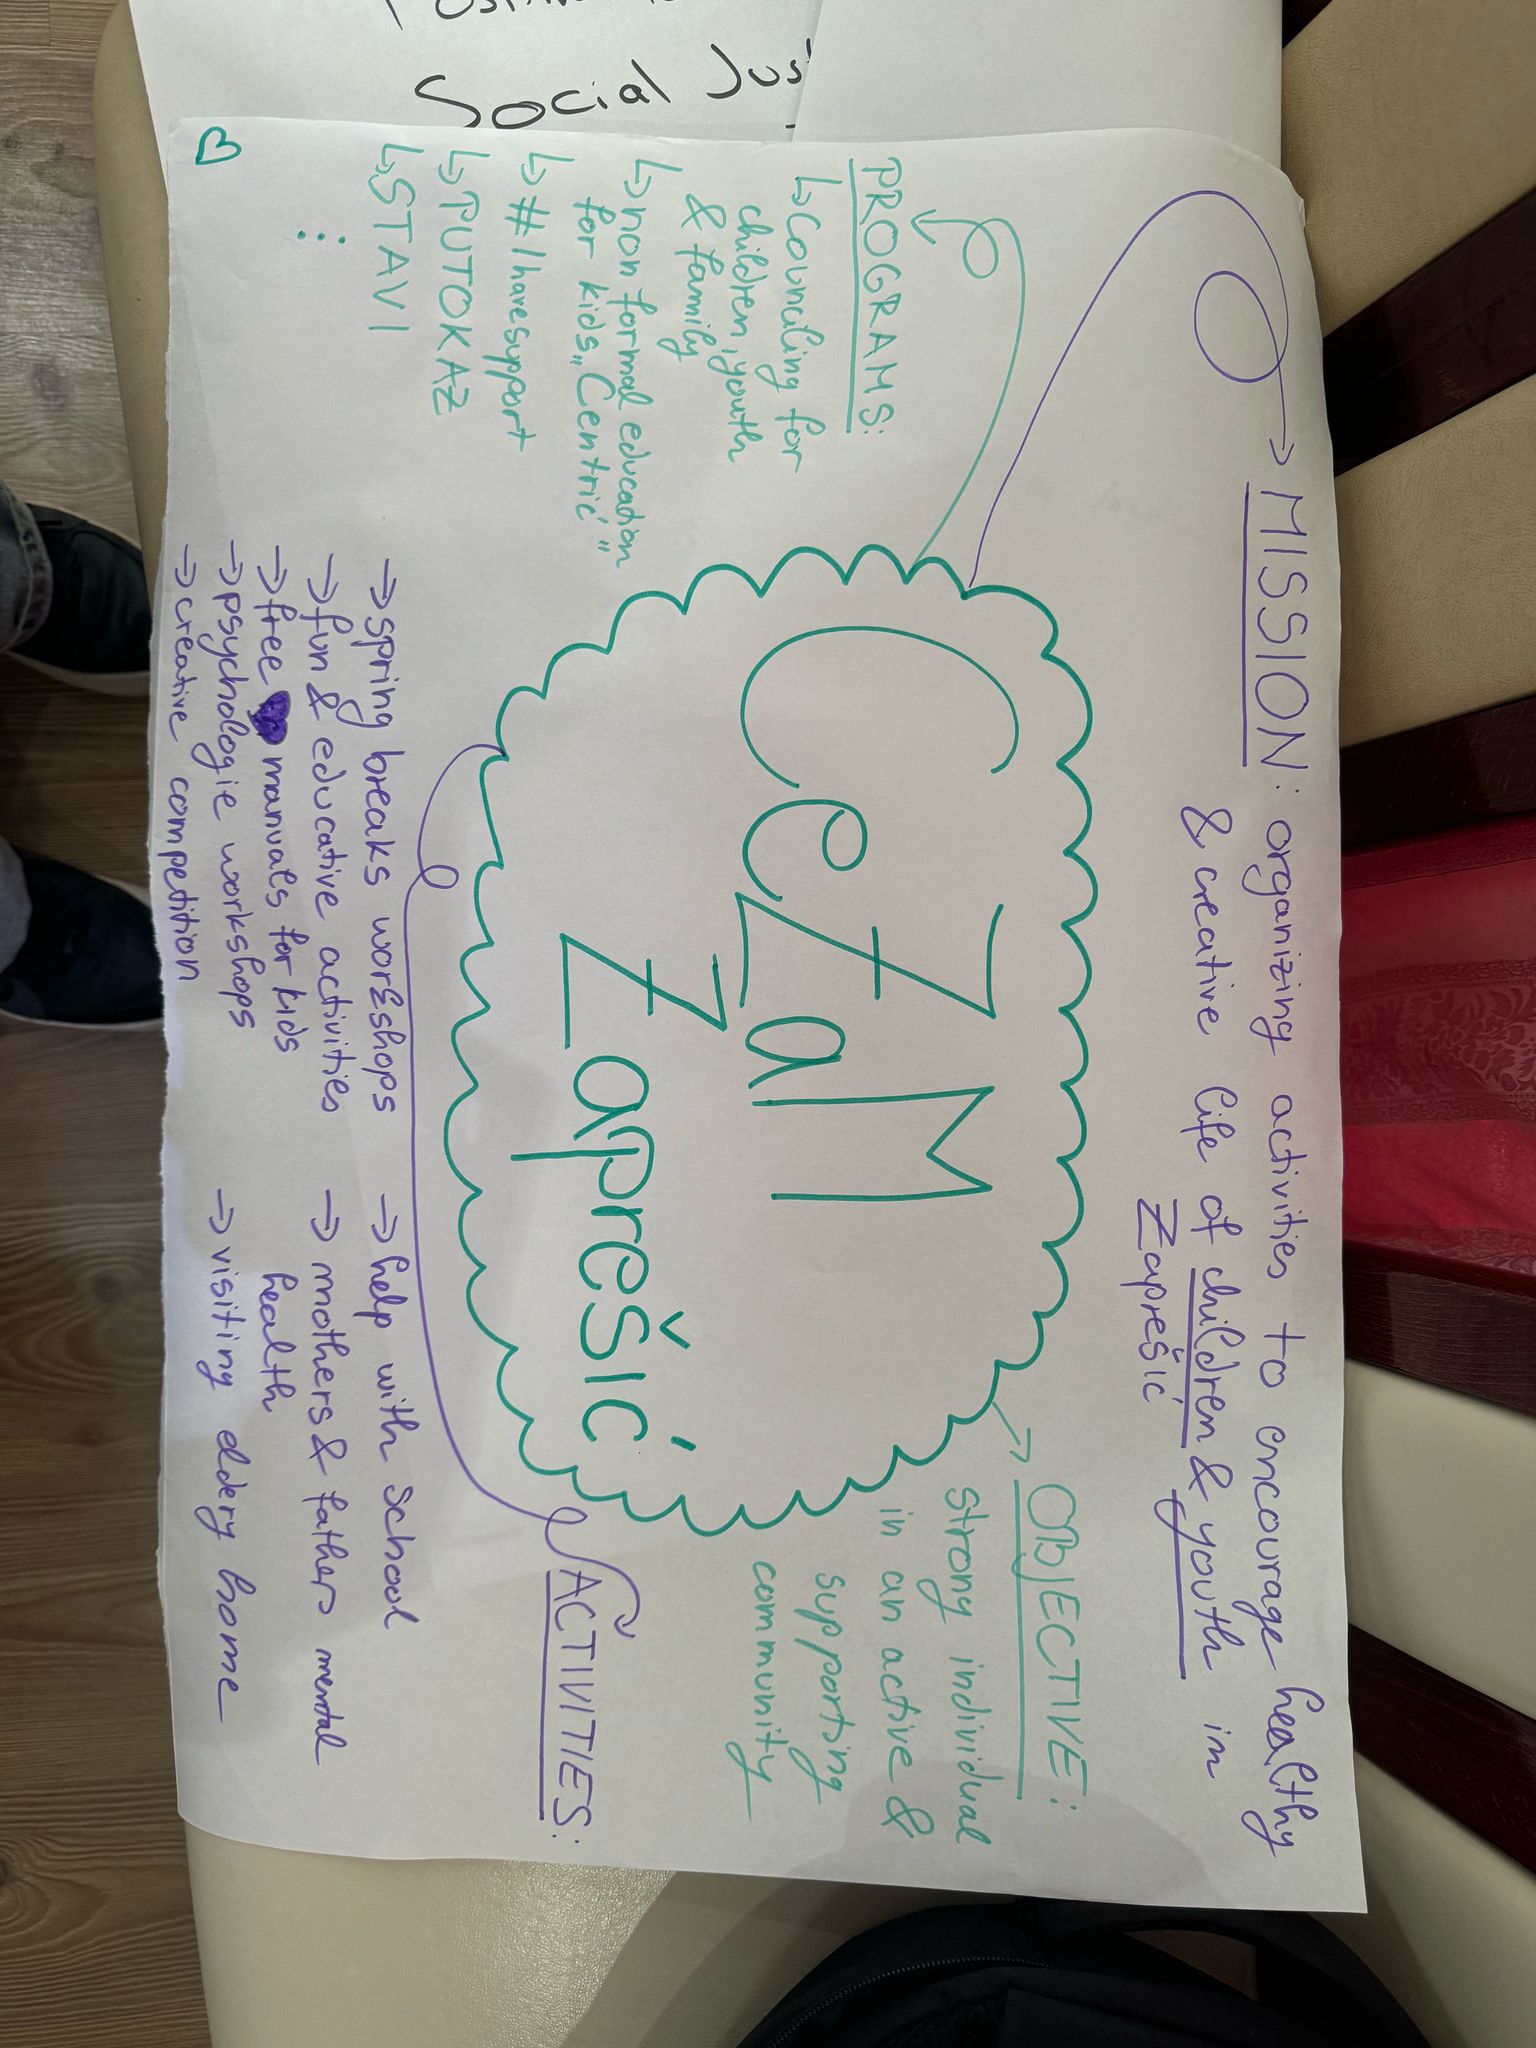 Social Jus
MISSION: organizing activities to encourage healthy
& creative life of children & youth in
Zaprešić
PROGRAMS:
↳ Counciling for
children, youth
& family
↳ non formal education
for kids „Centrić"
↳ #Ihavesupport
↳ PUTOKAZ
↳ STAVI
⋮
CeZaM
Zaprešić
OBJECTIVE:
strong individual
in an active &
supporting
community
ACTIVITIES:
→ spring breaks workshops
→ fun & educative activities
→ free manuals for kids
→ psychologie workshops
→ creative competition
→ help with school
→ mothers & fathers mental
health
→ visiting eldery home